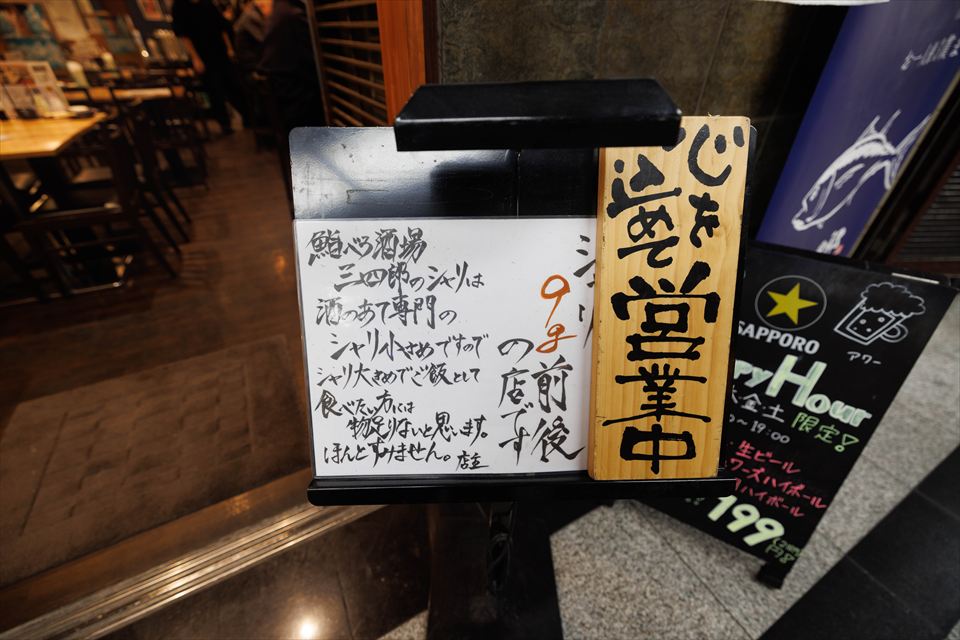 心を
込めて
営業中
シャリ
9g前後
の店です
鮨べろ酒場
三四郎のシャリは
酒のあて専門の
シャリ小さめですので
シャリ大きめでご飯として
食べたい方には
物足りないと思います。
ほんとすみません。店主
SAPPORO
アワー
Hour
金土 限定!
19:00
生ビール
ハイボール
ハイボール
199